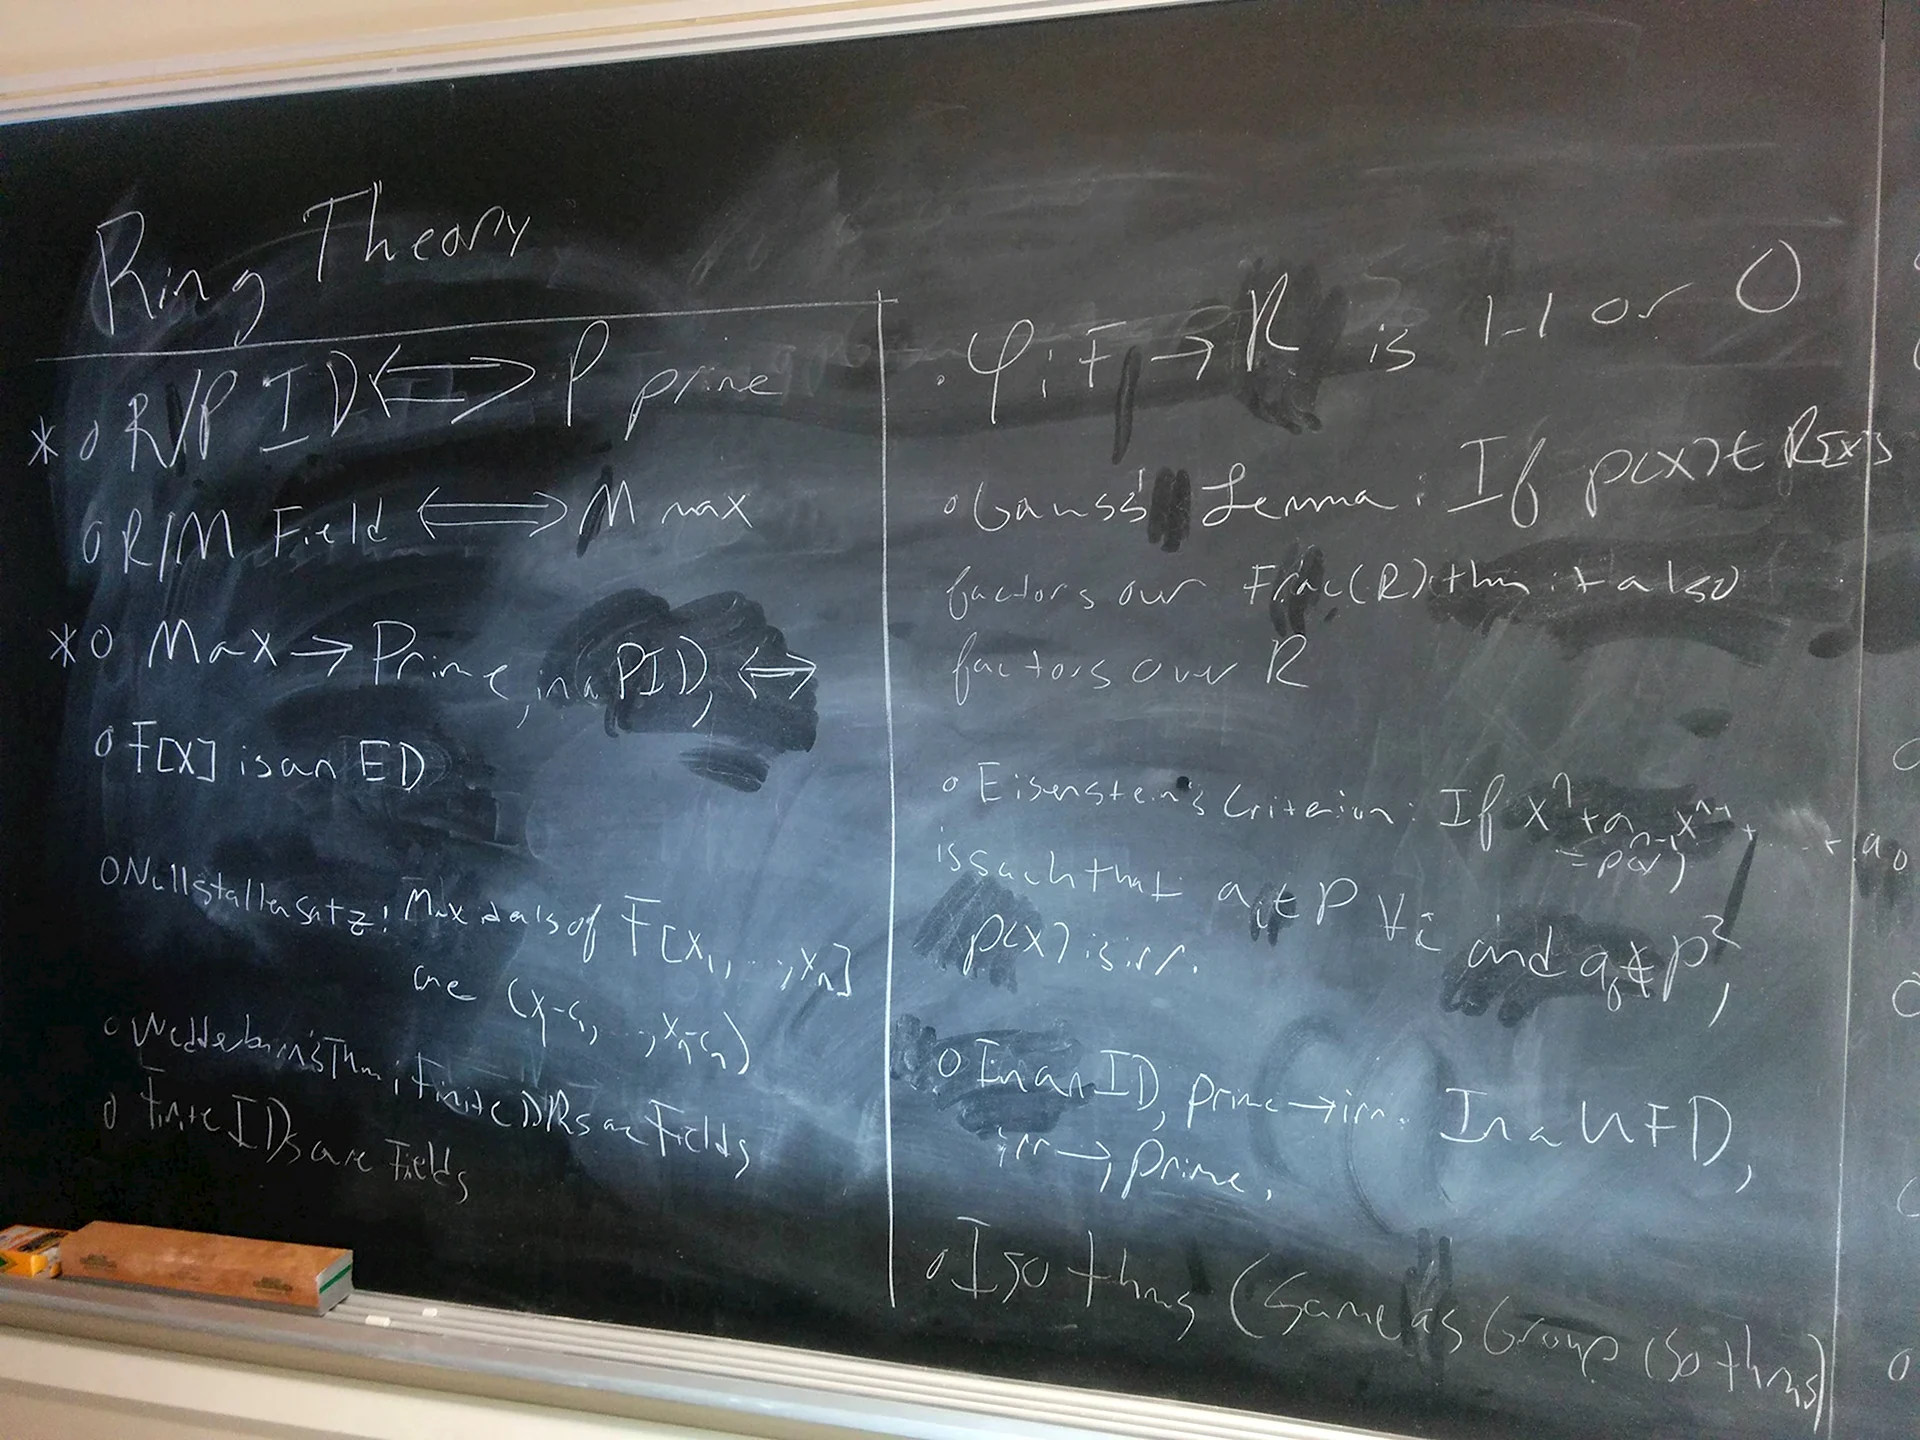 Ring Theory
* o R/P ID ⟺ P prime
o R/M Field ⟺ M max
* o Max → Prime, in a PID, ⟺
o F[x] is an ED
o Nullstallensatz: Max ideals of F[x₁, ..., xₙ]
are (x-c₁, ..., xₙ-cₙ)
o Wedderburn's Thm: Finite DRs are Fields
o Finite IDs are Fields
· φ: F → R is 1-1 or 0
o Gauss' Lemma: If p(x) ∈ R[x]
factors over Frac(R) then it also
factors over R
o Eisenstein's Criterion: If xⁿ + aₙ₋₁xⁿ⁻¹ + ... + a₀
= p(x)
is such that aᵢ ∈ P ∀i and a₀ ∉ P²,
p(x) is irr.
o In an ID, prime → irr. In a UFD,
irr → prime.
o Iso thms (Same as Group Iso thms)